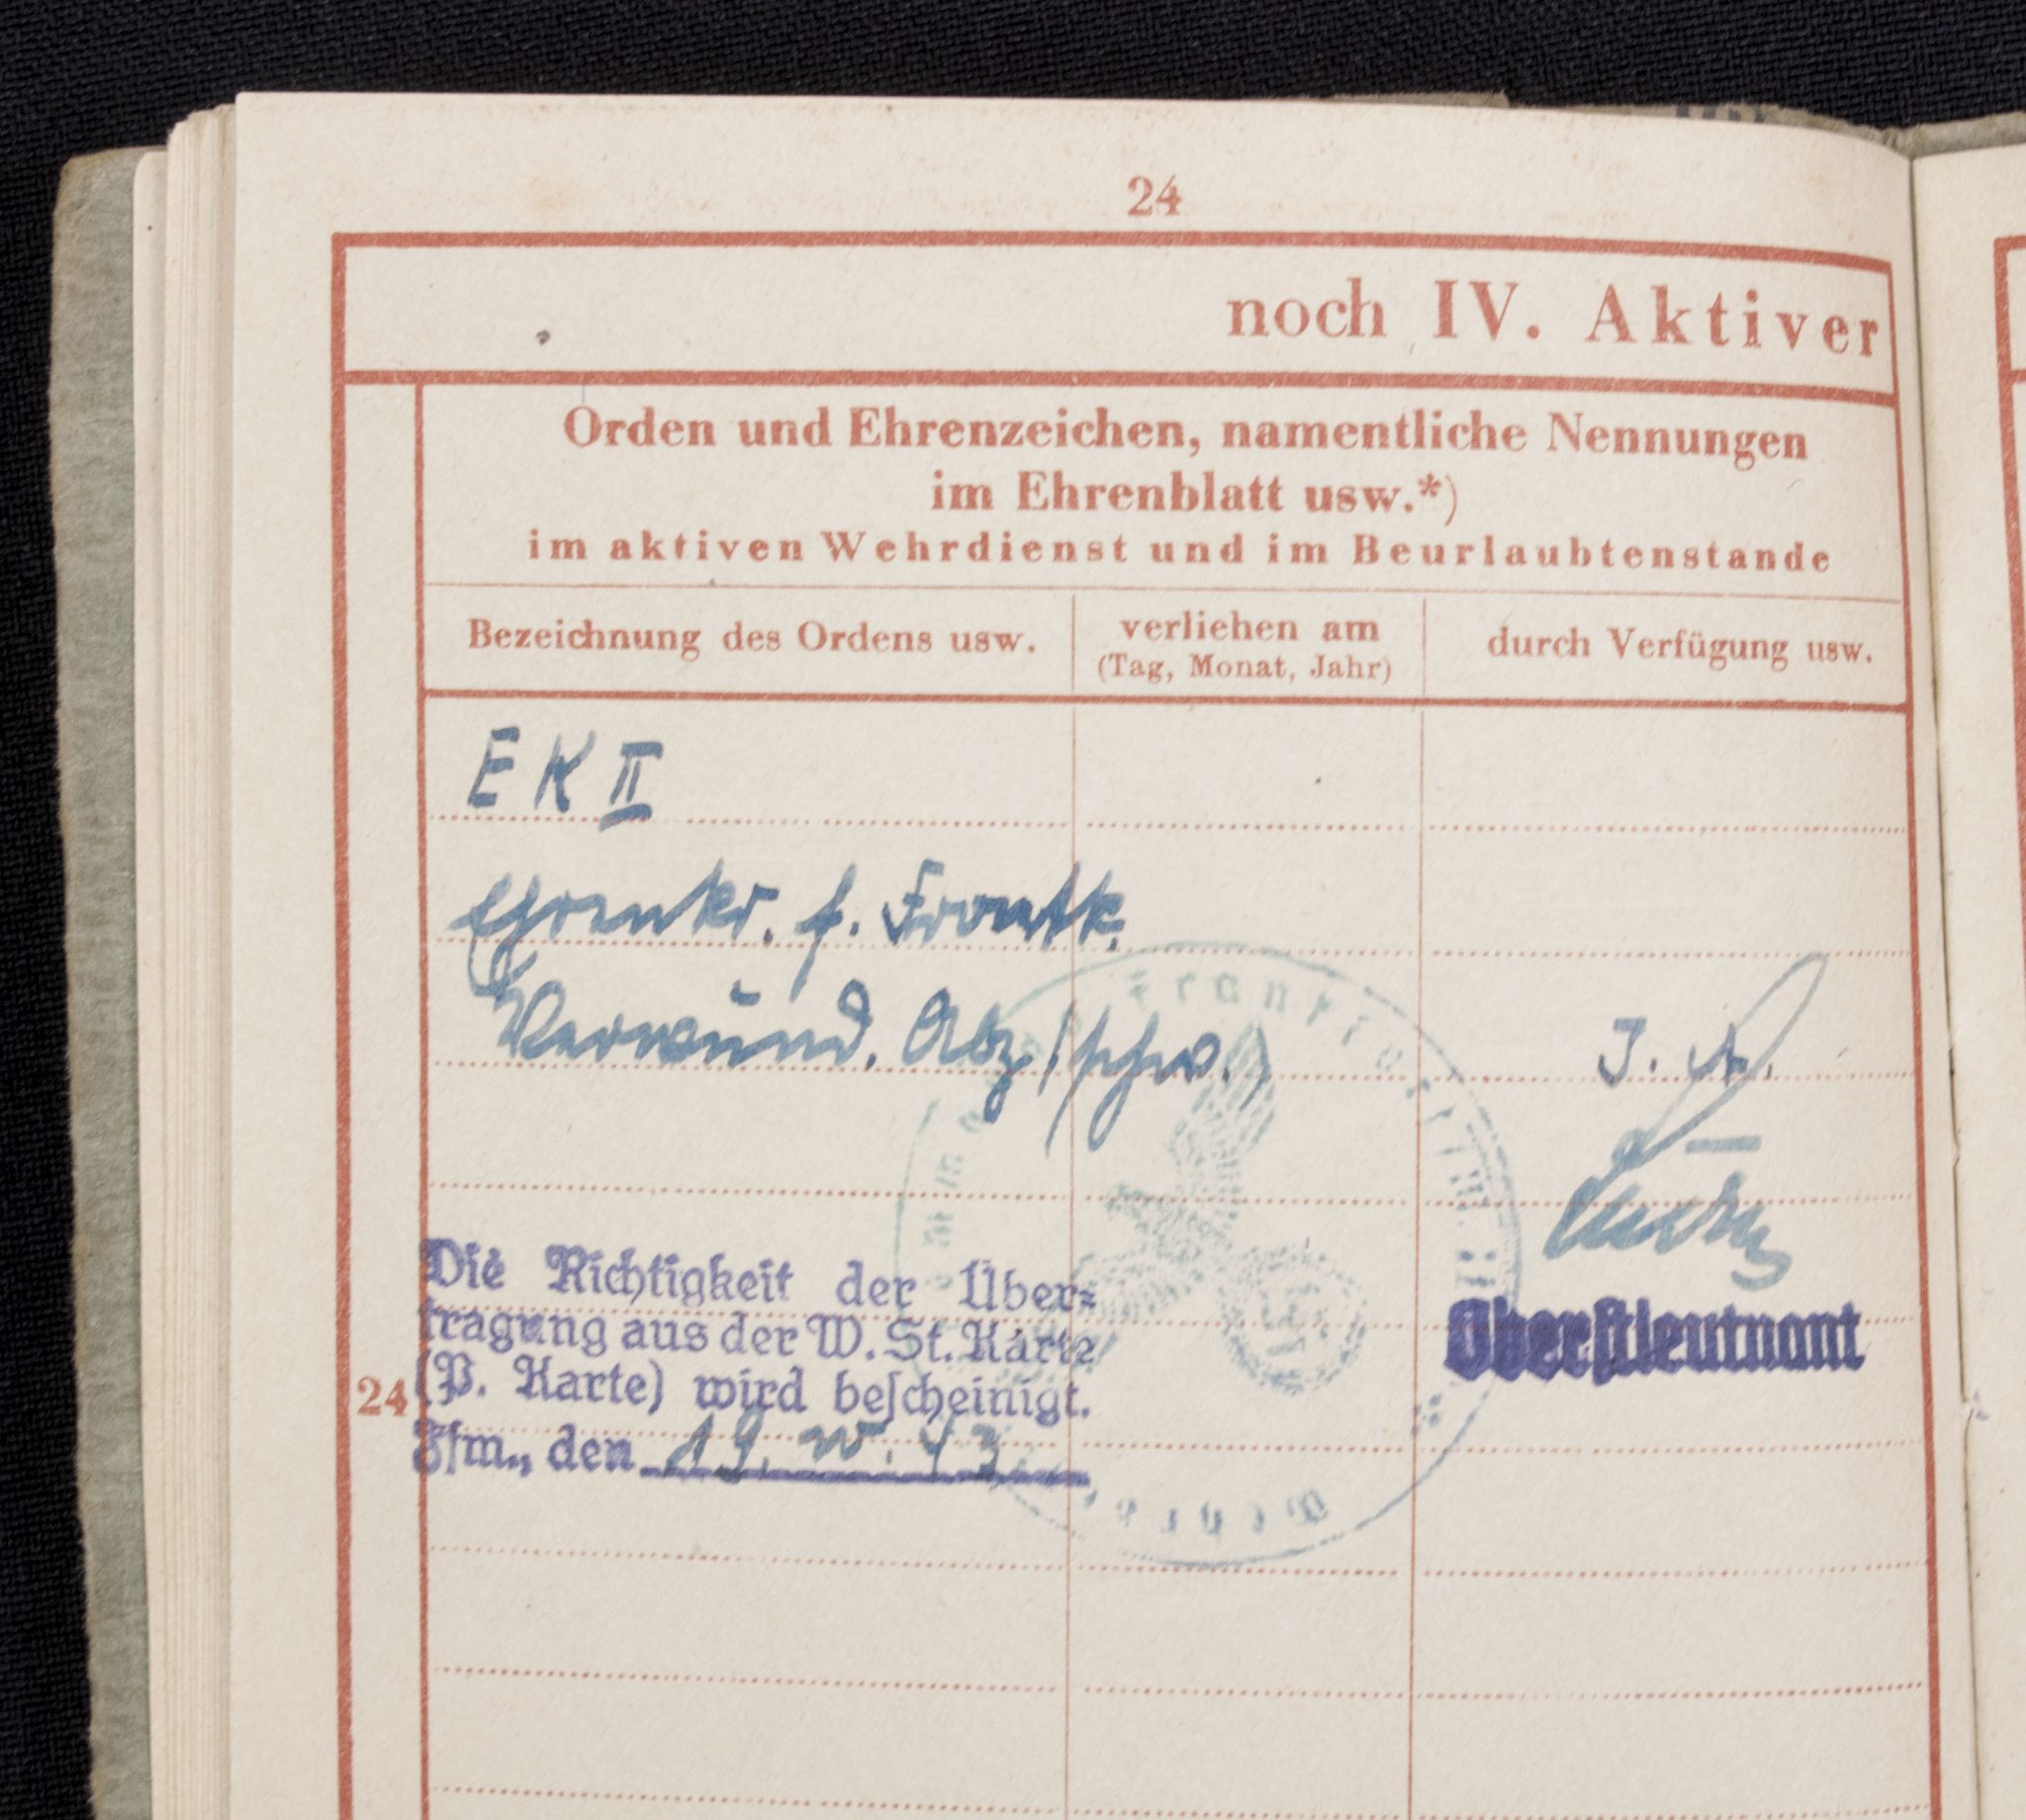 24
noch IV. Aktiver
Orden und Ehrenzeichen, namentliche Nennungen
im Ehrenblatt usw.*)
im aktiven Wehrdienst und im Beurlaubtenstande
Bezeichnung des Ordens usw.
verliehen am
(Tag, Monat, Jahr)
durch Verfügung usw.
E K II
Ehrenkr. f. Frontk.
Verwund. Abz. (schw.)
J. A.
Oberstleutnant
Die Richtigkeit der Über=
tragung aus der W. St. Karte
(P. Karte) wird bescheinigt.
24
Ffm., den 19. IV. 43